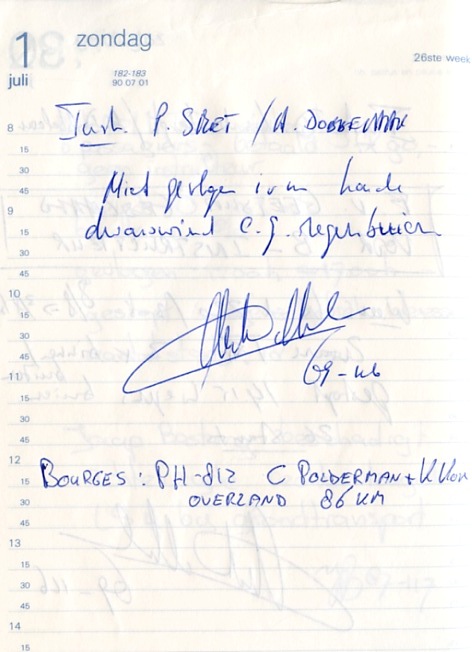 1 zondag
juli
182-183
90 07 01
26ste week
8
Instr. P. SMET / A. DOBBELMAN
15
30
Niet gevlogen i.v.m. harde
45
9
dwarswind e.g. regenbuien
15
30
45
10
15
30
69-116
45
11
15
30
45
12
BOURGES: PH-812 C POLDERMAN + K KOK
15
OVERZAND 86 KM
30
45
13
15
30
45
14
15